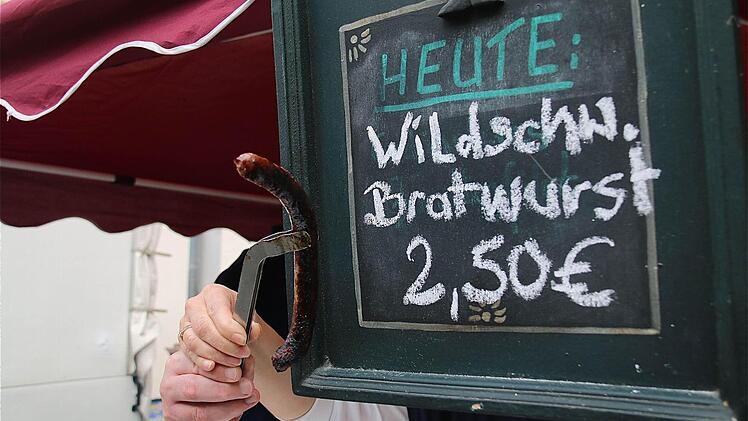 HEUTE:
Wildschw.
Bratwurst
2,50€